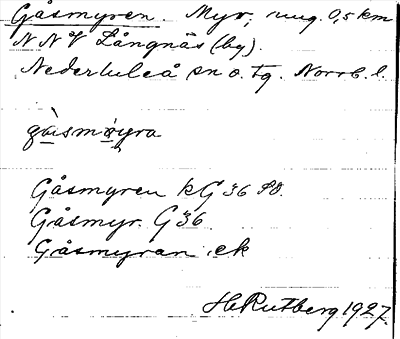 Gåsmyren. Myr, ung. 0,5 km
NNV Långnäs (by).
Nederluleå sn o. tg. Norrb. l.
Gåsmyren kG 36 so.
Gåsmyr. G 36
Gåsmyran ek
H Rutberg 1927.